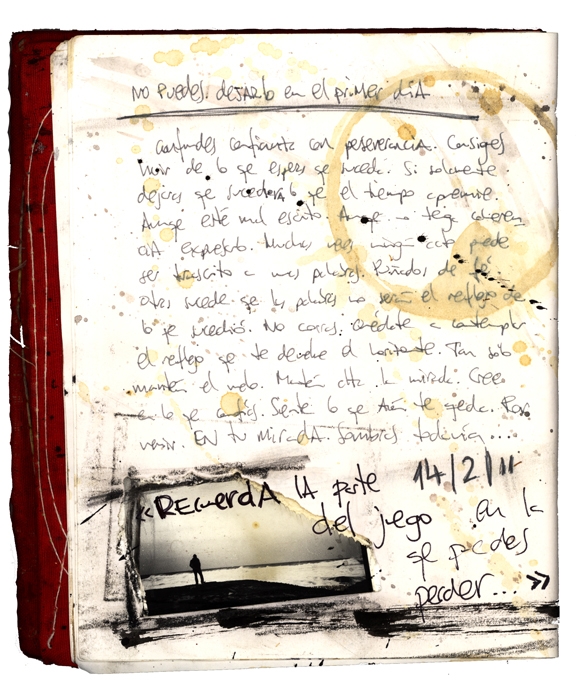 NO PUEDES. DEJARLO en el primer diA
confundes confianza con perseverancia. Consigues
huir de lo que esperas que suceda. Si solamente
dejaras que sucediera lo que el tiempo
Aunque este mal escrito. Aunque no tenga coheren
cia expresarlo. Muchas veces ningún acto puede
ser transcrito a unas palabras. Puñados de fé.
otras sucede que las palabras no serán el reflejo de
lo que sucedió. No corras. Quédate a contemplar
el reflejo que te devuelve el horizonte. Tan solo
mantén el vuelo. Mantén alta la mirada. Cree
en lo que confías. Siente lo que Aún te queda. Por
venir. EN tu MiradA. Sombras todavía...
14/2/11
«RecuerdA lA parte
del juego en la
que puedes
perder... »